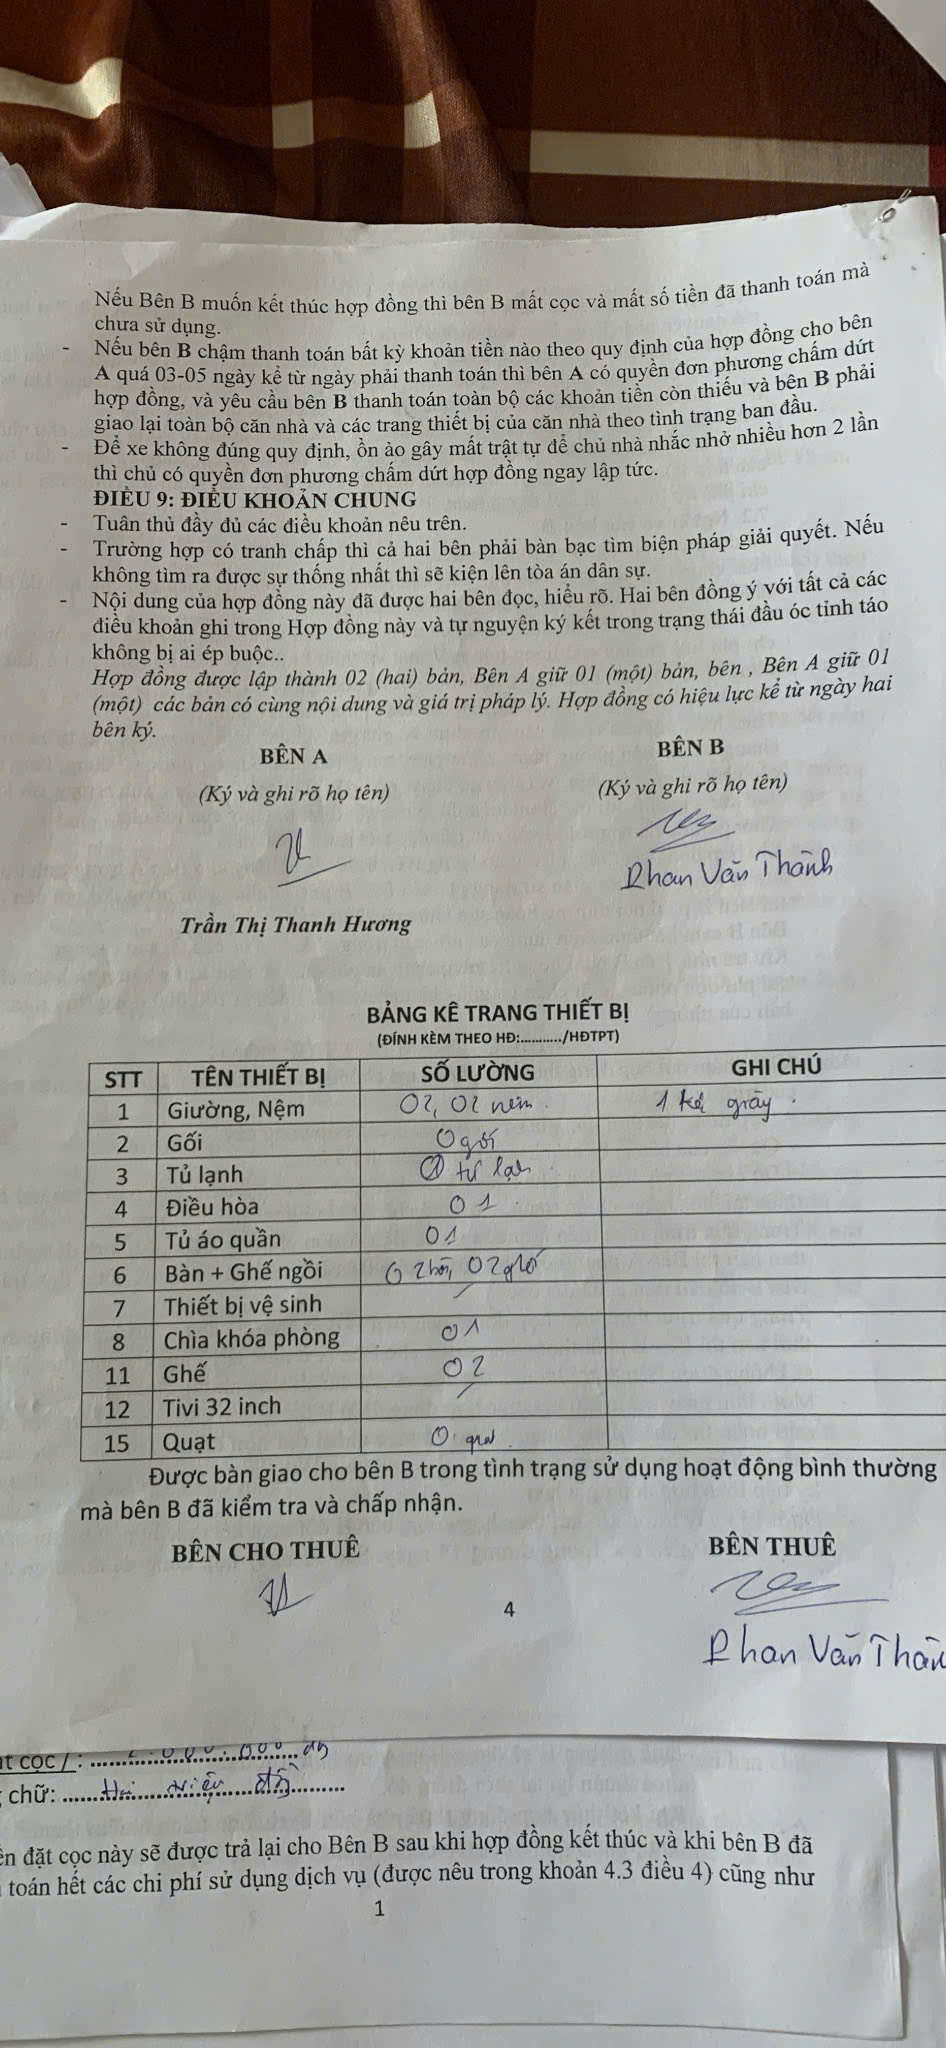 Nếu Bên B muốn kết thúc hợp đồng thì bên B mất cọc và mất số tiền đã thanh toán mà
chưa sử dụng.
- Nếu bên B chậm thanh toán bất kỳ khoản tiền nào theo quy định của hợp đồng cho bên
A quá 03-05 ngày kể từ ngày phải thanh toán thì bên A có quyền đơn phương chấm dứt
hợp đồng, và yêu cầu bên B thanh toán toàn bộ các khoản tiền còn thiếu và bên B phải
giao lại toàn bộ căn nhà và các trang thiết bị của căn nhà theo tình trạng ban đầu.
- Để xe không đúng quy định, ồn ào gây mất trật tự để chủ nhà nhắc nhở nhiều hơn 2 lần
thì chủ có quyền đơn phương chấm dứt hợp đồng ngay lập tức.
ĐIỀU 9: ĐIỀU KHOẢN CHUNG
- Tuân thủ đầy đủ các điều khoản nêu trên.
- Trường hợp có tranh chấp thì cả hai bên phải bàn bạc tìm biện pháp giải quyết. Nếu
không tìm ra được sự thống nhất thì sẽ kiện lên tòa án dân sự.
- Nội dung của hợp đồng này đã được hai bên đọc, hiểu rõ. Hai bên đồng ý với tất cả các
điều khoản ghi trong Hợp đồng này và tự nguyện ký kết trong trạng thái đầu óc tỉnh táo
không bị ai ép buộc..
Hợp đồng được lập thành 02 (hai) bản, Bên A giữ 01 (một) bản, bên , Bên A giữ 01
(một) các bản có cùng nội dung và giá trị pháp lý. Hợp đồng có hiệu lực kể từ ngày hai
bên ký.
BÊN A BÊN B
(Ký và ghi rõ họ tên) (Ký và ghi rõ họ tên)
Phan Văn Thành
Trần Thị Thanh Hương
BẢNG KÊ TRANG THIẾT BỊ
(ĐÍNH KÈM THEO HĐ:.........../HĐTPT)
STT TÊN THIẾT BỊ SỐ LƯỜNG GHI CHÚ
1 Giường, Nệm 02, 02 nệm. 1 kệ giày.
2 Gối 0 gối
3 Tủ lạnh 01 tủ lạnh
4 Điều hòa 01
5 Tủ áo quần 01
6 Bàn + Ghế ngồi 02 bàn, 02 ghế
7 Thiết bị vệ sinh /
8 Chìa khóa phòng 01
11 Ghế 02
12 Tivi 32 inch /
15 Quạt 0 quạt.
Được bàn giao cho bên B trong tình trạng sử dụng hoạt động bình thường
mà bên B đã kiểm tra và chấp nhận.
BÊN CHO THUÊ BÊN THUÊ
4
Phan Văn Thàn
t cọc / : 2.000.000 đồng
chữ: Hai triệu đồng
ền đặt cọc này sẽ được trả lại cho Bên B sau khi hợp đồng kết thúc và khi bên B đã
toán hết các chi phí sử dụng dịch vụ (được nêu trong khoản 4.3 điều 4) cũng như
1